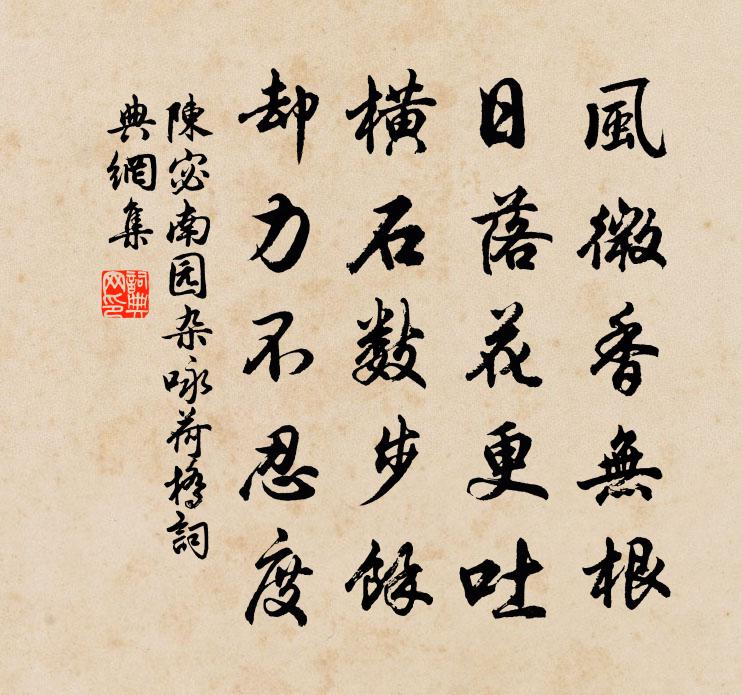 風微香無根
日落花更吐
橫石數步餘
却力不忍度
陳宓南园杂咏荷橋詞
典網集
詞典
网印